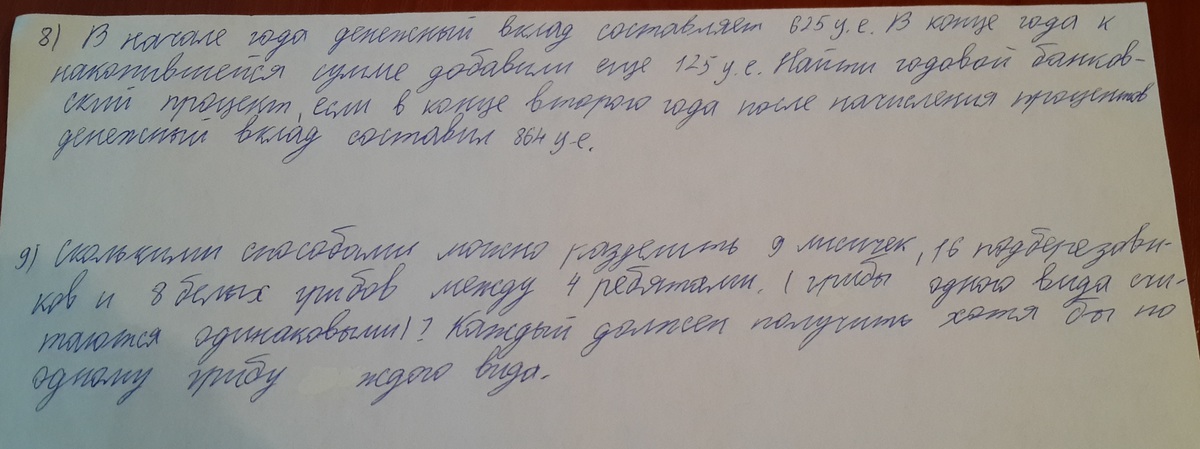 8) В начале года денежный вклад составляет 625 у.е. В конце года к
накопившейся сумме добавили еще 125 у.е. Найти годовой банков-
ский процент, если в конце второго года после начисления процентов
денежный вклад составил 864 у.е.
9) Сколькими способами можно разделить 9 лисичек, 16 подберезови-
ков и 8 белых грибов между 4 ребятами. (грибы одного вида счи-
таются одинаковыми)? Каждый должен получить хотя бы по
одному грибу ждого вида.